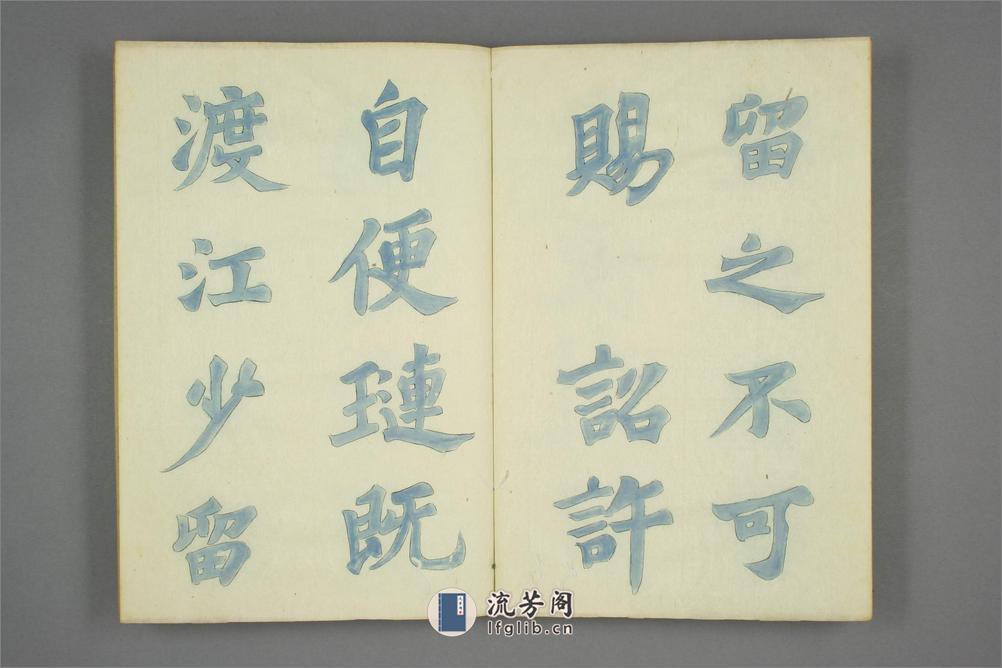 留之不可
賜　詔許
自便璉既
渡江少留
流芳阁
lfglib.cn